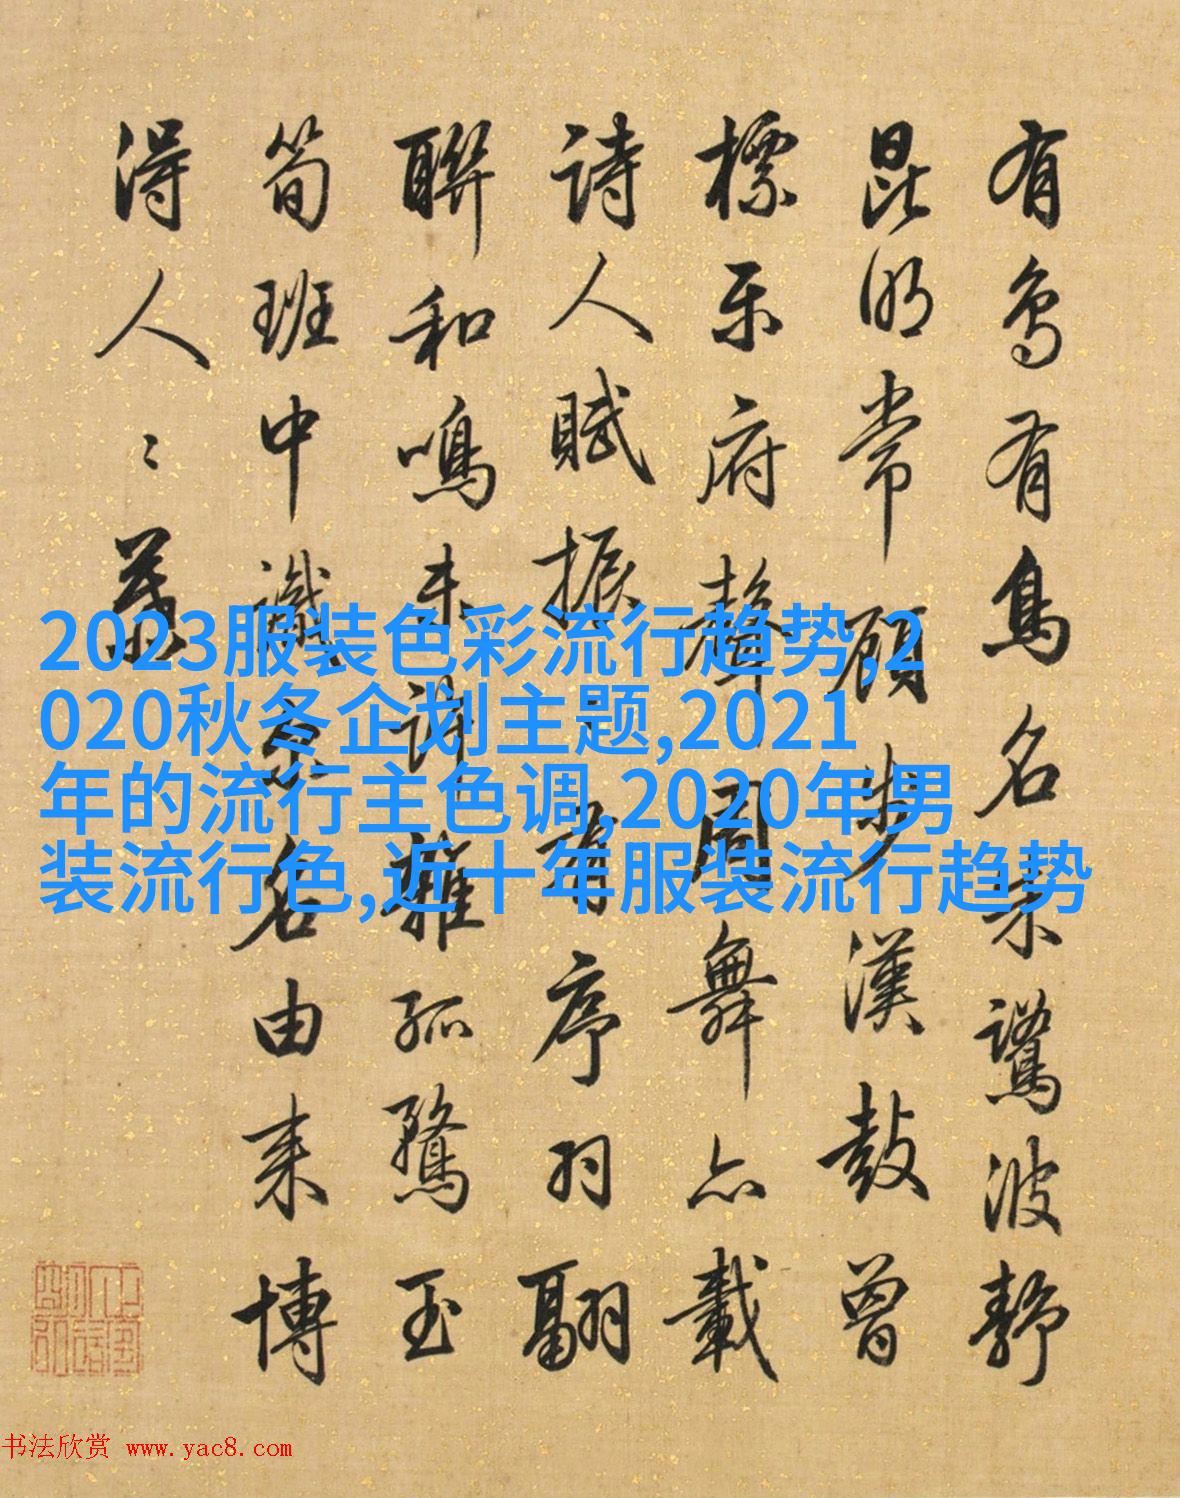 有鳥有鳥名朱鷺波静
昆明常顧步漢鼓曾
標樂府聲周舞亦載
詩人賦振有序羽翩
聯和鳴未許雜孤騖玉
筍班中識名由来博
得人々慕
2023服装色彩流行趋势,2
020秋冬企划主题,2021
年的流行主色调,2020年男
装流行色,近十年服装流行趋势
书法欣赏 www.yac8.com